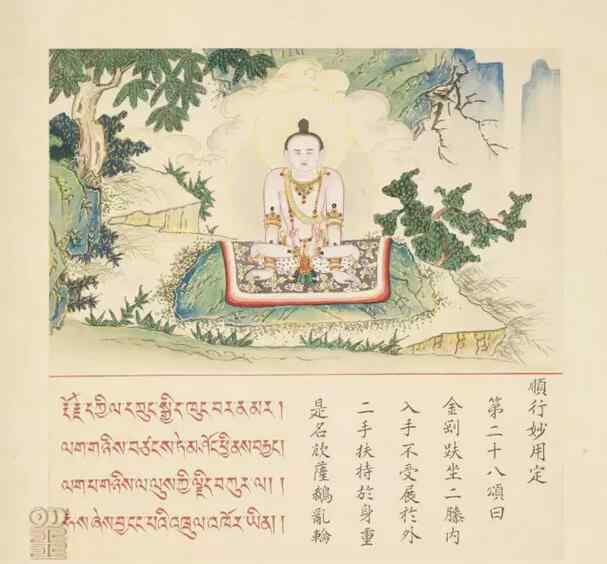 順行妙用定
第二十八頌曰
金剛趺坐二膝內
入手不受展於外
二手扶持於身重
是名薩鵝亂輪
རྡོ་རྗེ་དཀྱིལ་དཀྲུང་སྒྱིད་ཁུང་བར་ནམར། །
ལག་གཉིས་བཙངས་ཏེ་མ་ཤོང་ཕྱི་ནས་བརྐྱང།
ལག་པ་གཉིས་ལ་ལུས་ཀྱི་ལྗིད་བཀུར་ལ། །
ཧཾས་ཞེས་བྱ་ངང་པའི་འཁྲུལ་འཁོར་ཡིན། །